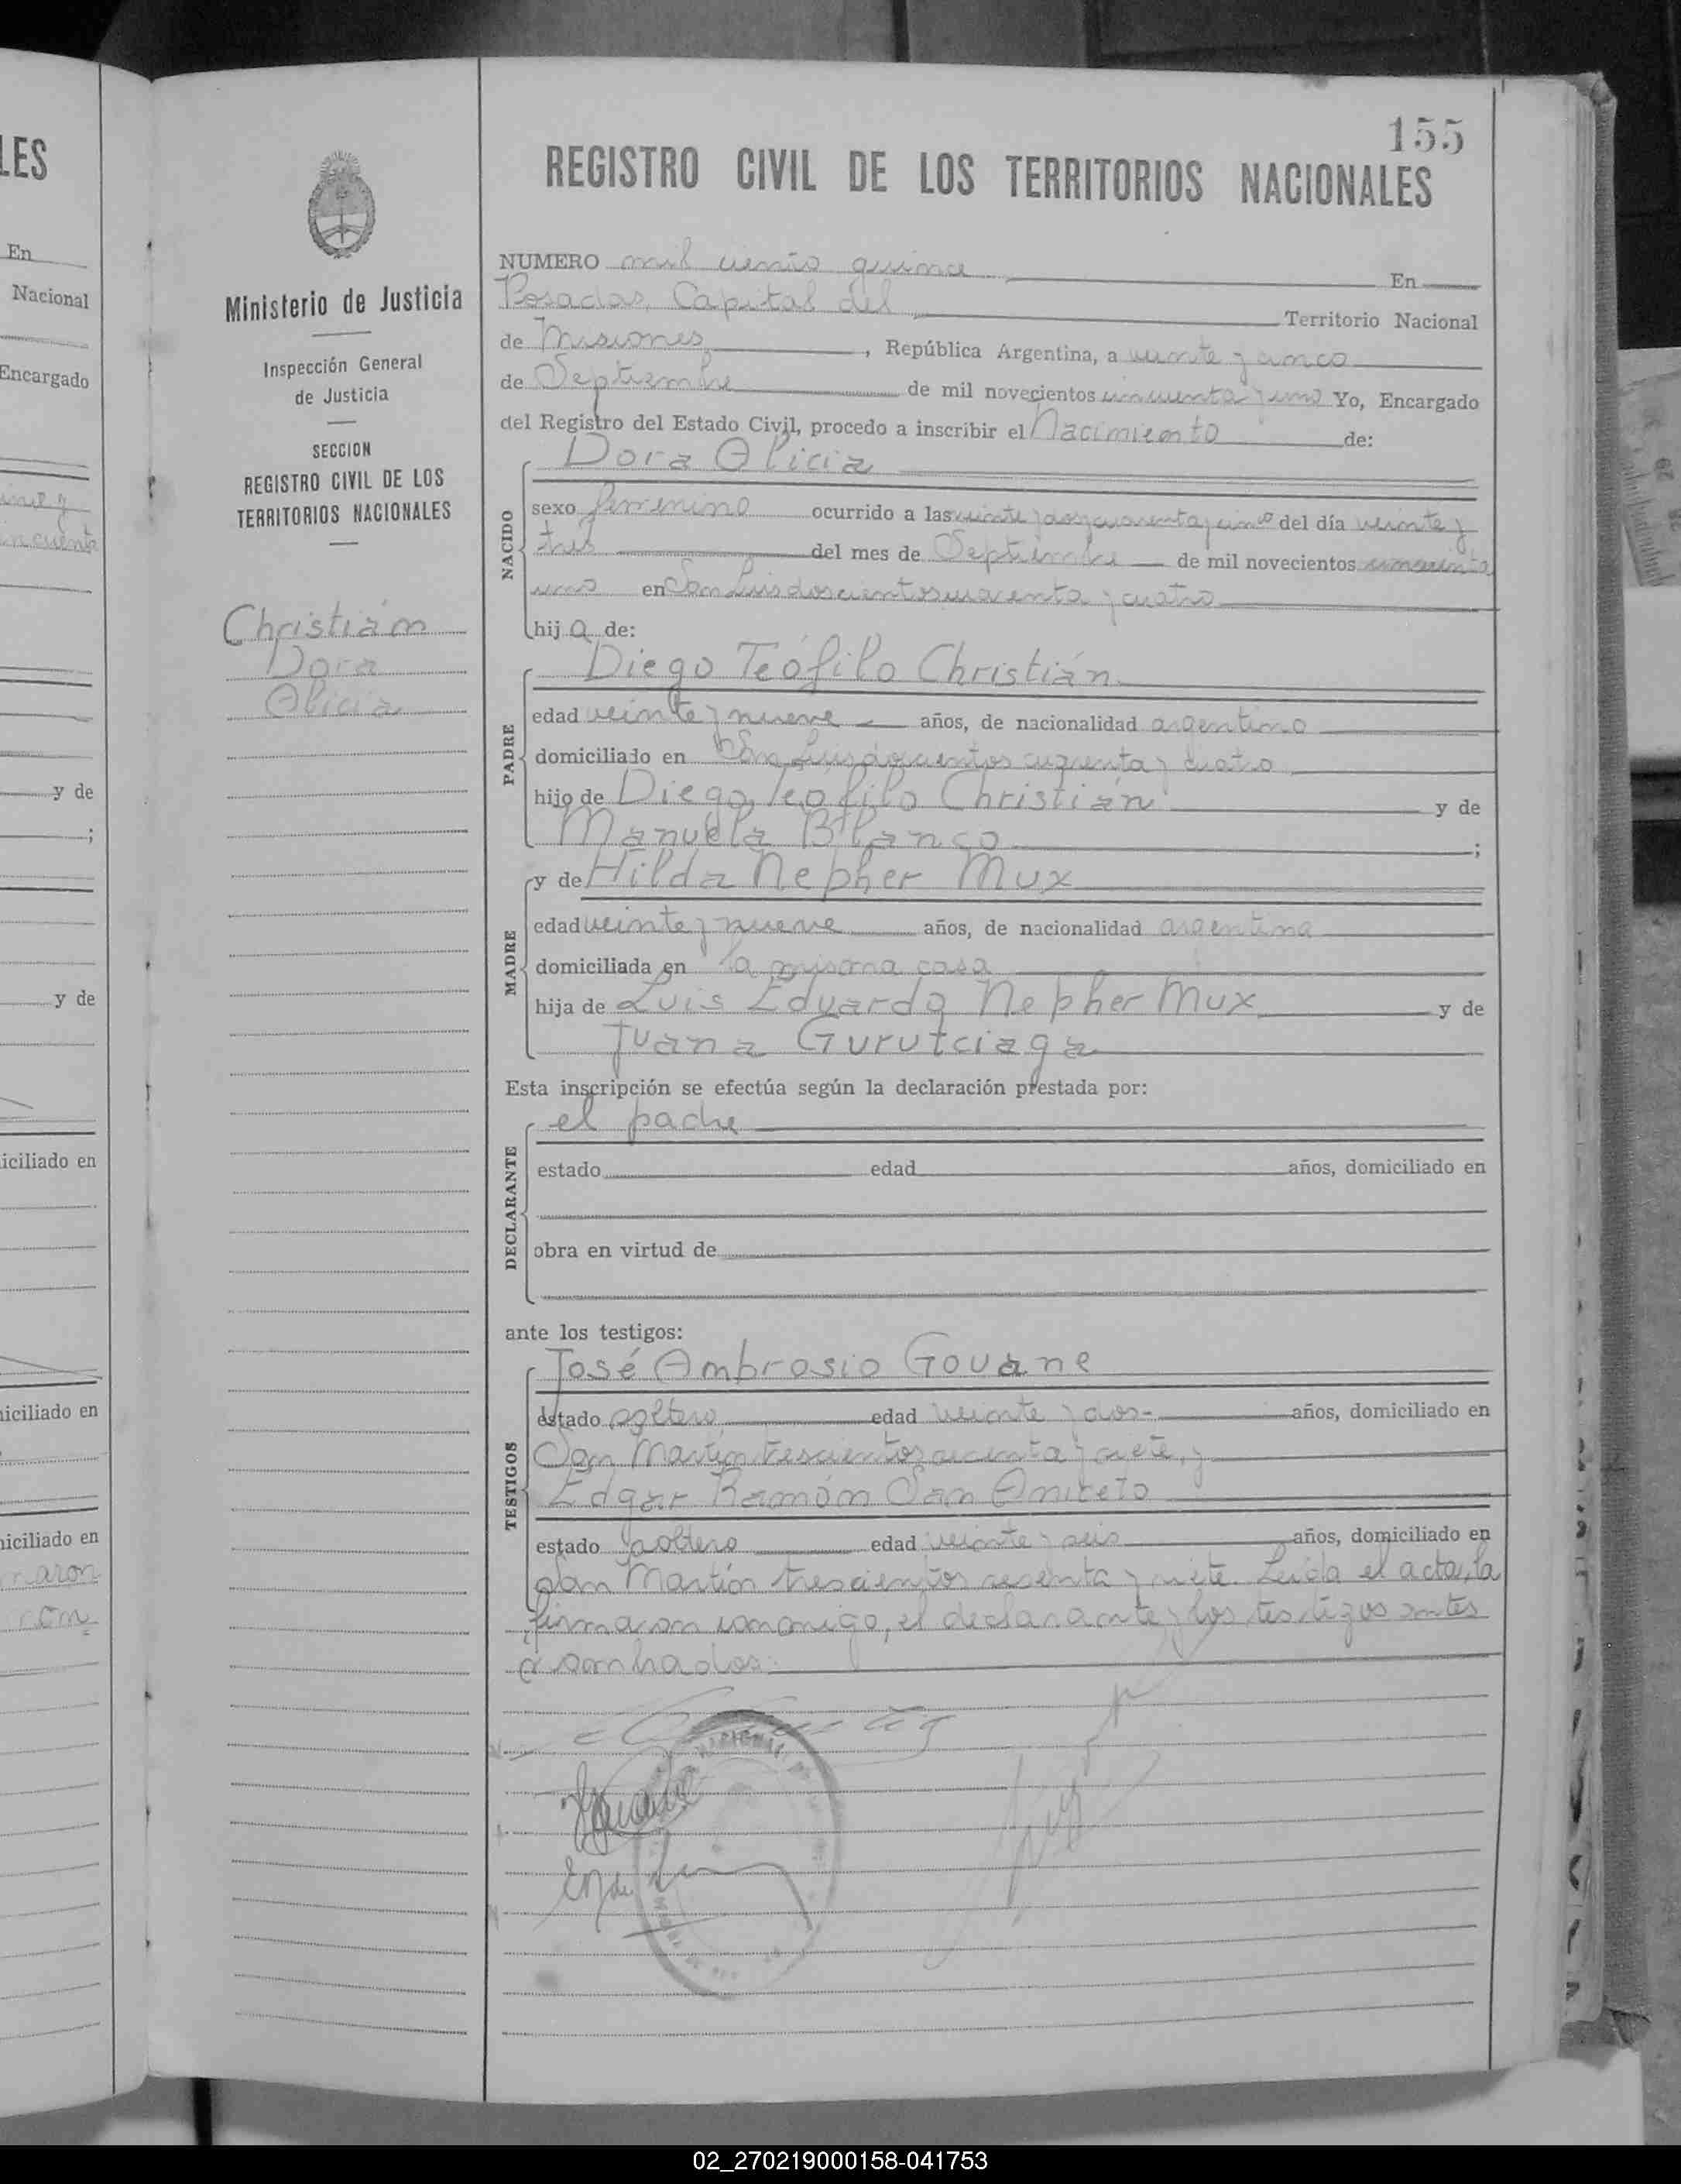 155
LES
En
Nacional
Encargado
y de
;
y de
iciliado en
iciliado en
niciliado en
naron
con
Ministerio de Justicia
Inspección General
de Justicia
SECCION
REGISTRO CIVIL DE LOS
TERRITORIOS NACIONALES
Christián
Dora
Alicia
REGISTRO CIVIL DE LOS TERRITORIOS NACIONALES
NUMERO mil ciento quince En
Posadas, Capital del Territorio Nacional
de Misiones, República Argentina, a veinte y cinco
de Septiembre de mil novecientos cincuenta y uno Yo, Encargado
del Registro del Estado Civil, procedo a inscribir el Nacimiento de:
Dora Alicia
NACIDO
sexo femenino ocurrido a las veinte y dos y cuarenta y cinco del día veinte y
tres del mes de Septiembre de mil novecientos cincuenta
uno en San Luis doscientos cuarenta y cuatro
hija de:
PADRE
Diego Teófilo Christián
edad veinte y nueve años, de nacionalidad argentino
domiciliado en San Luis doscientos cuarenta y cuatro
hijo de Diego Teofilo Christián y de
Manuela Blanco ;
MADRE
y de Hilda Nepher Mux
edad veinte y nueve años, de nacionalidad argentina
domiciliada en la misma casa
hija de Luis Eduardo Nepher Mux y de
Juana Gurutciaga
Esta inscripción se efectúa según la declaración prestada por:
DECLARANTE
el padre
estado edad años, domiciliado en
obra en virtud de
ante los testigos:
TESTIGOS
José Ambrosio Govane
estado soltero edad veinte y dos- años, domiciliado en
San Martín trescientos sesenta y siete, y
Edgar Ramón San Aniceto
estado soltero edad veinte y seis años, domiciliado en
San Martín trescientos sesenta y siete. Leída el acta, la
firmaron conmigo, el declarante y los testigos antes
nombrados.
NACIONAL
02_270219000158-041753